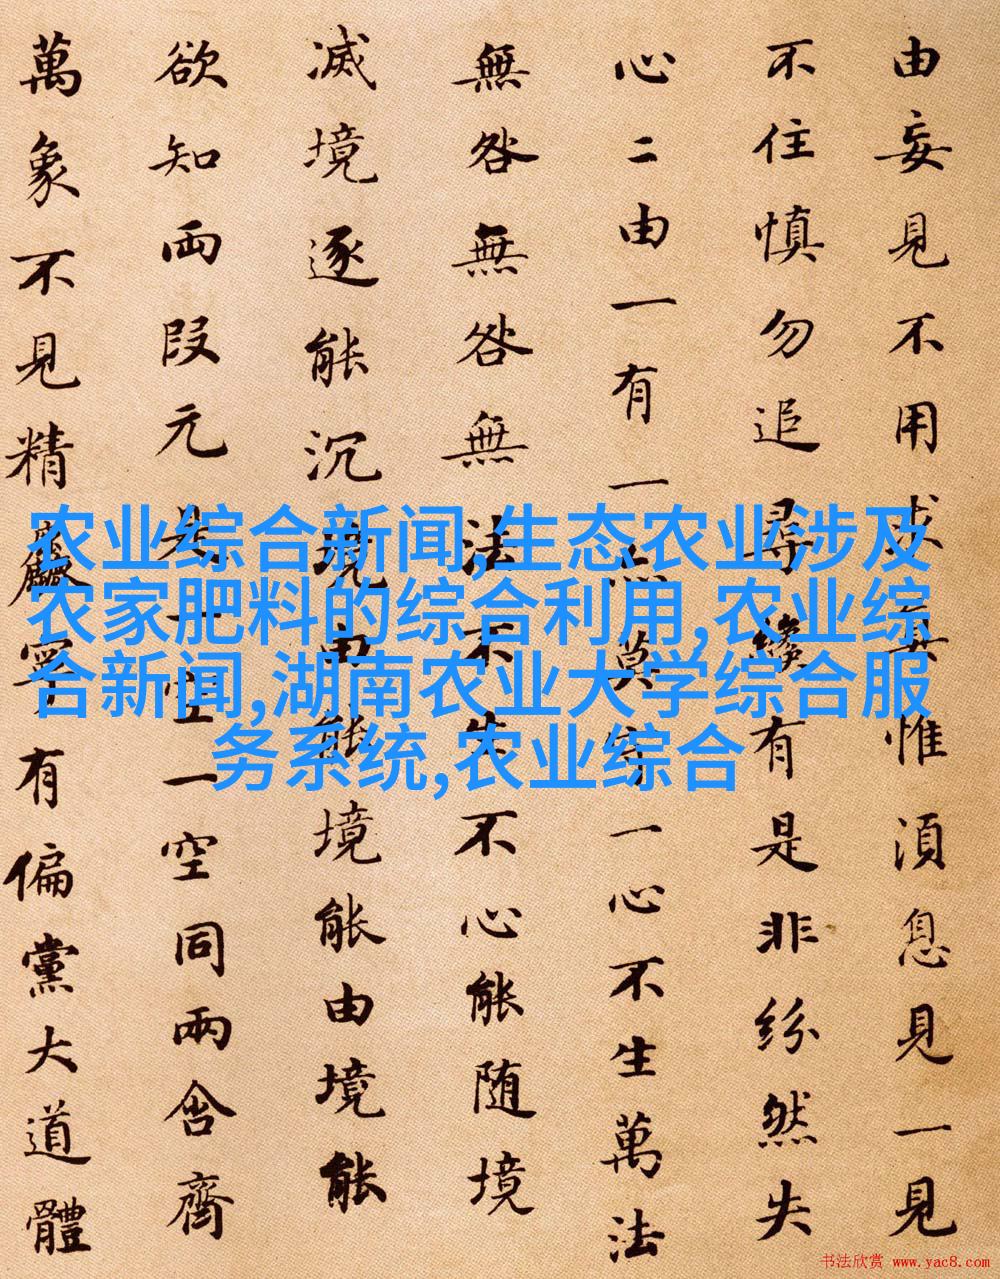 由妄見不用求真惟湏息見一見
不住慎勿追尋纔有是非紛然失
心二由一有一亦莫守一心不生萬法
無咎無咎無法不生不心能随境
滅境逐能沉境由能境能由境能
欲知両段元是一空一空同兩含齊
萬象不見精麤寧有偏黨大道體
农业综合新闻,生态农业涉及
农家肥料的综合利用,农业综
合新闻,湖南农业大学综合服
务系统,农业综合
书法欣赏 www.yac8.com